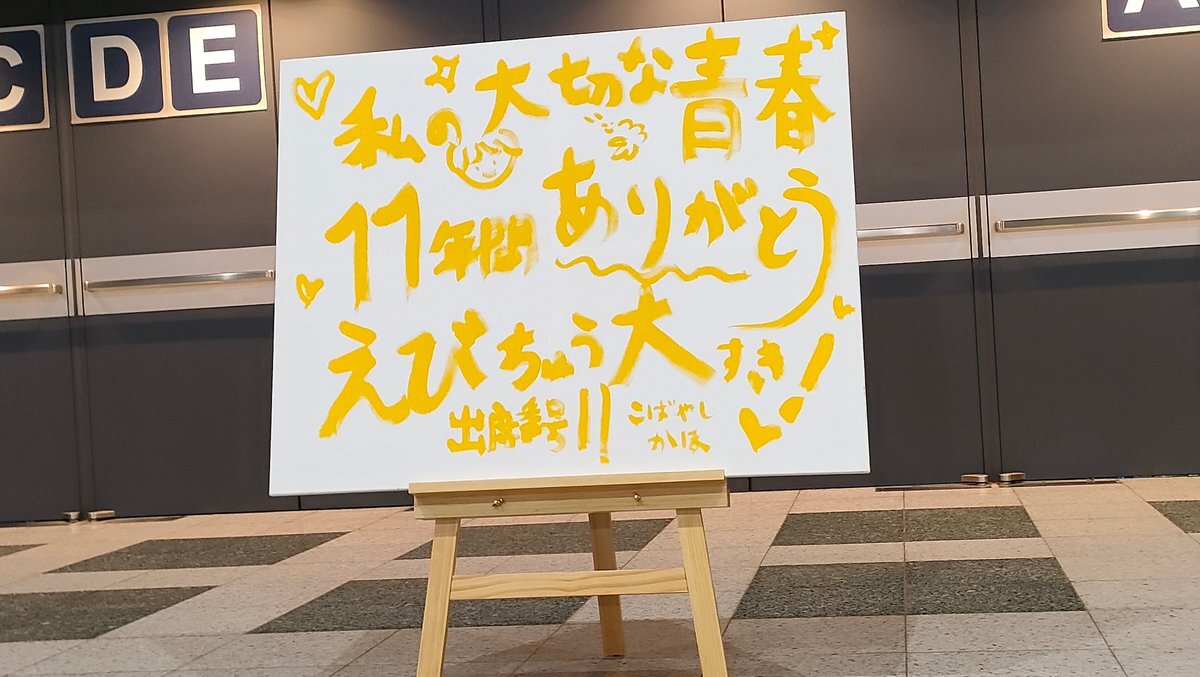 C D E
A
私の大切な青春
11年間ありがとう
えびちゅう大すき!
出席番号11 こばやし
かほ